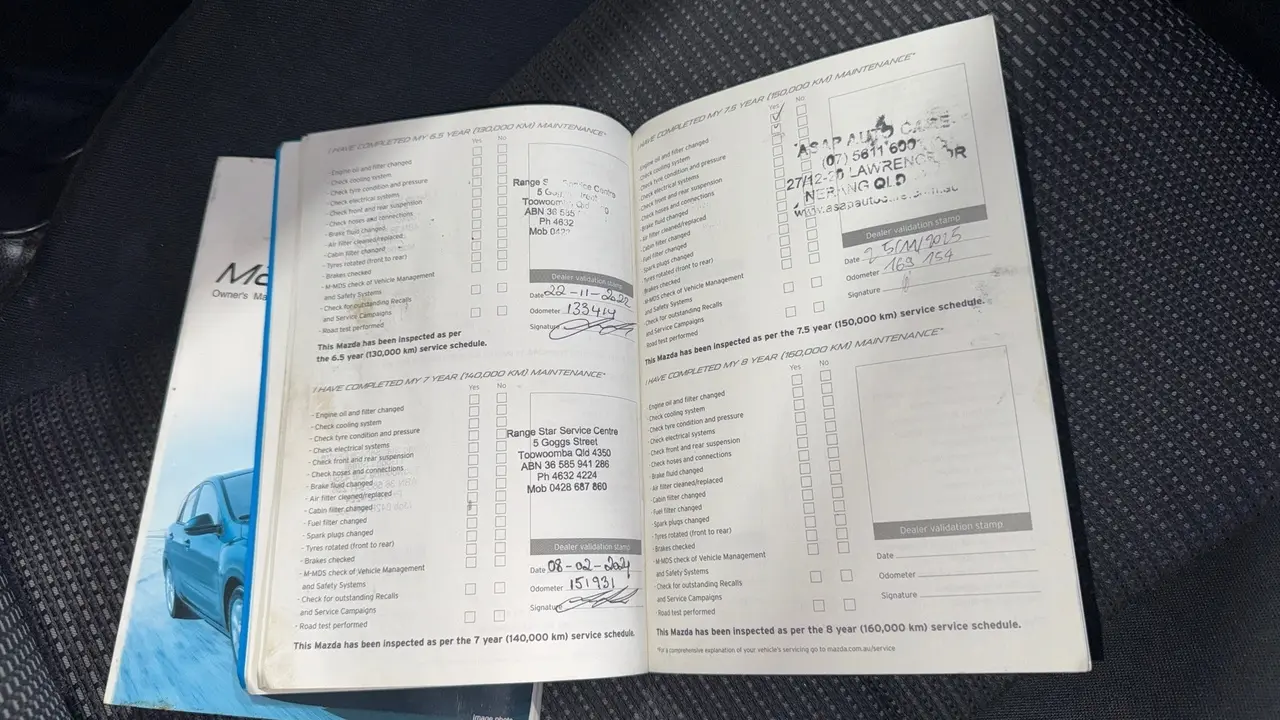 Owner's Ma
I HAVE COMPLETED MY 6.5 YEAR (130,000 KM) MAINTENANCE*
Yes No
- Engine oil and filter changed
- Check cooling system
- Check tyre condition and pressure
- Check electrical systems
- Check front and rear suspension
- Check hoses and connections
- Brake fluid changed
- Air filter cleaned/replaced
- Cabin filter changed
- Tyres rotated (front to rear)
- Brakes checked
- M-MDS check of Vehicle Management
and Safety Systems
- Check for outstanding Recalls
and Service Campaigns
- Road test performed
This Mazda has been inspected as per
the 6.5 year (130,000 km) service schedule.
Range Service Centre
5
Toowoomba
ABN 36 585
Ph 4632
Mob
Dealer validation stamp
Date 22-11-2022
Odometer 133414
Signature
I HAVE COMPLETED MY 7 YEAR (140,000 KM) MAINTENANCE*
Yes No
- Engine oil and filter changed
- Check cooling system
- Check tyre condition and pressure
- Check electrical systems
- Check front and rear suspension
- Check hoses and connections
- Brake fluid changed
- Air filter cleaned/replaced
- Cabin filter changed
- Fuel filter changed
- Spark plugs changed
- Tyres rotated (front to rear)
- Brakes checked
- M-MDS check of Vehicle Management
and Safety Systems
- Check for outstanding Recalls
and Service Campaigns
- Road test performed
This Mazda has been inspected as per the 7 year (140,000 km) service schedule.
Range Star Service Centre
5 Goggs Street
Toowoomba Qld 4350
ABN 36 585 941 286
Ph 4632 4224
Mob 0428 687 860
Dealer validation stamp
Date 08-02-2024
Odometer 151931
Signature
I HAVE COMPLETED MY 7.5 YEAR (150,000 KM) MAINTENANCE*
Yes No
- Engine oil and filter changed
- Check cooling system
- Check tyre condition and pressure
- Check electrical systems
- Check front and rear suspension
- Check hoses and connections
- Brake fluid changed
- Air filter cleaned/replaced
- Cabin filter changed
- Fuel filter changed
- Spark plugs changed
- Tyres rotated (front to rear)
- Brakes checked
- M-MDS check of Vehicle Management
and Safety Systems
- Check for outstanding Recalls
and Service Campaigns
- Road test performed
This Mazda has been inspected as per the 7.5 year (150,000 km) service schedule.
ASAP AUTO CARE
(07) 5611 600
27/12-20 LAWRENCE DR
NERANG QLD
Dealer validation stamp
Date 25/11/2025
Odometer 169 154
Signature
I HAVE COMPLETED MY 8 YEAR (160,000 KM) MAINTENANCE*
Yes No
- Engine oil and filter changed
- Check cooling system
- Check tyre condition and pressure
- Check electrical systems
- Check front and rear suspension
- Check hoses and connections
- Brake fluid changed
- Air filter cleaned/replaced
- Cabin filter changed
- Fuel filter changed
- Spark plugs changed
- Tyres rotated (front to rear)
- Brakes checked
- M-MDS check of Vehicle Management
and Safety Systems
- Check for outstanding Recalls
and Service Campaigns
- Road test performed
This Mazda has been inspected as per the 8 year (160,000 km) service schedule.
*For a comprehensive explanation of your vehicle's servicing go to mazda.com.au/service
Dealer validation stamp
Date
Odometer
Signature
image photo